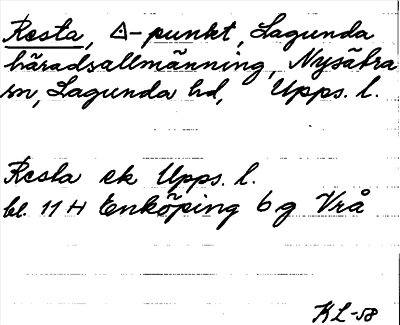 Resta, △-punkt, Lagunda
häradsallmänning, Nysätra
sn, Lagunda hd, Upps. l.
Resta ek Upps. l.
bl. 11 H Enköping 6 g Vrå
KL-58